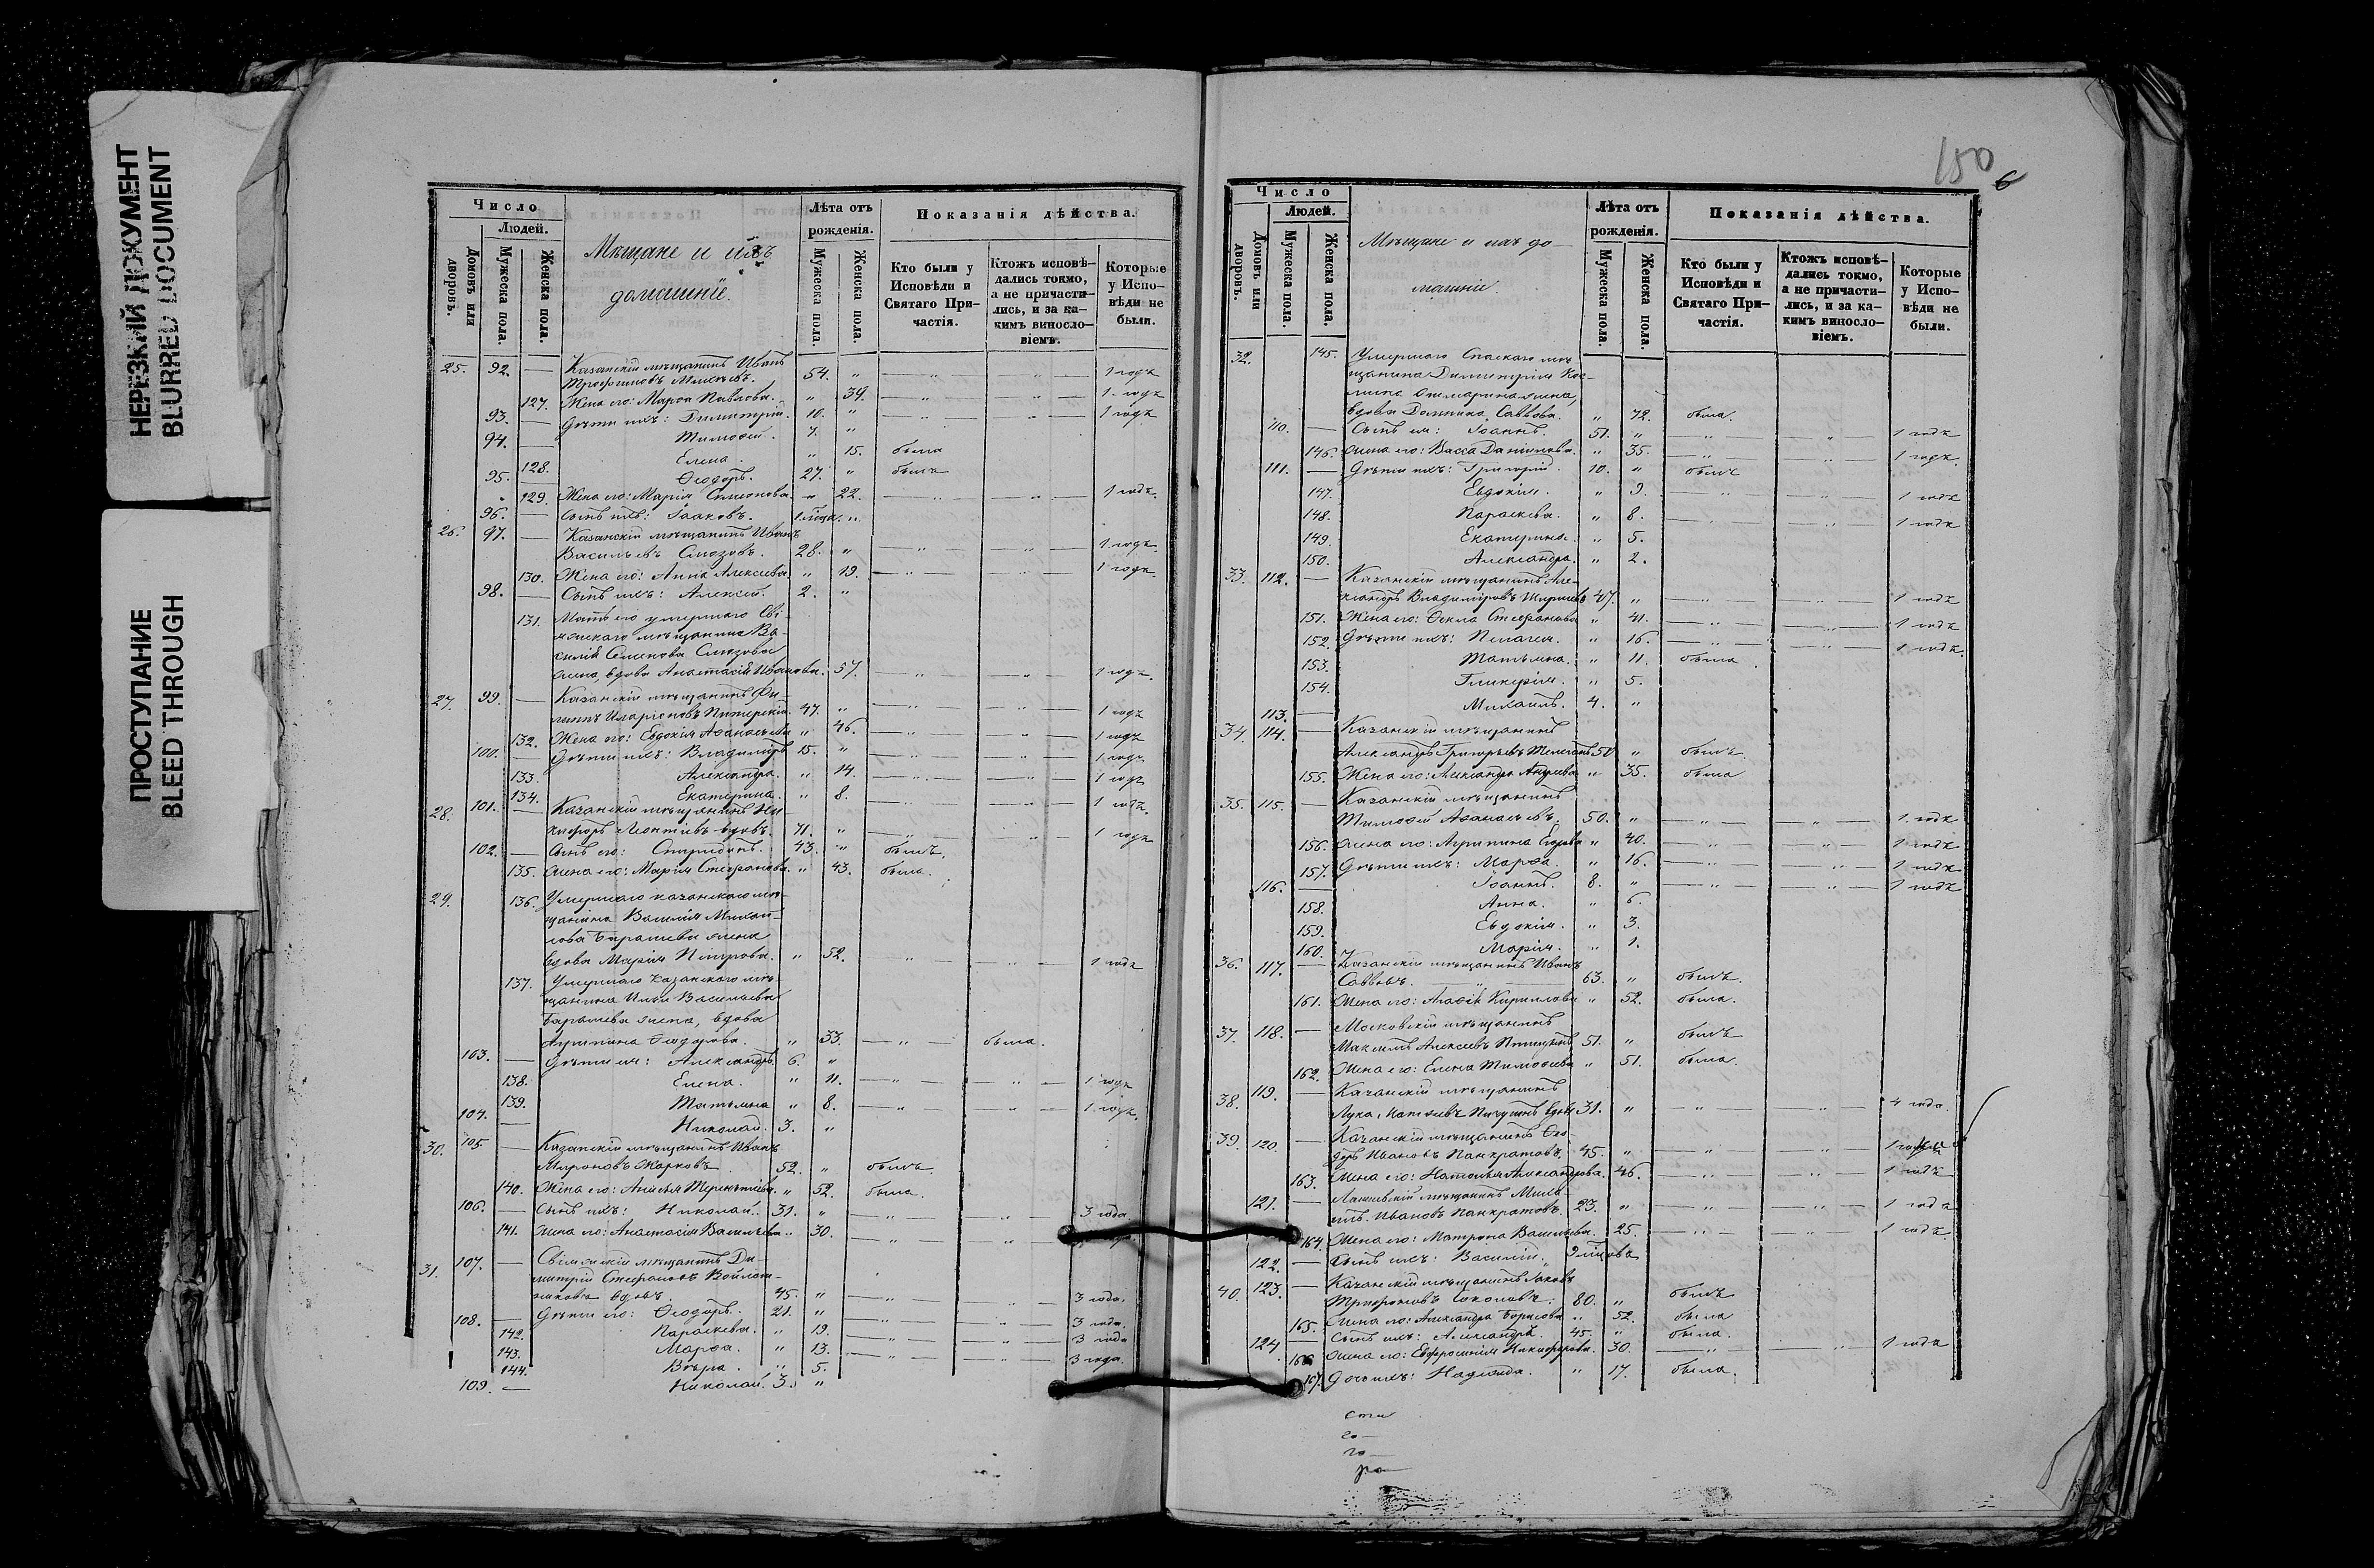 НЕРЕЗКИЙ ДОКУМЕНТ
BLURRED DOCUMENT
ПРОСТУПАНИЕ
BLEED THROUGH
Число
Людей.
Домовъ или дворовъ.
Мужеска пола.
Женска пола.
Мѣщане и ихъ
домашніе.
Лѣта отъ рожденія.
Мужеска пола.
Женска пола.
Показанія дѣйства.
Кто были у Исповѣди и Святаго Причастія.
Ктожъ исповѣдались токмо, а не причастились, и за какимъ винословіемъ.
Которые у Исповѣди не были.
25. 92. — Казанскій мѣщанинъ Иванъ
Трофимовъ 54. „ — „ — „ — 1 годъ
127. Жена его: Марѳа Павлова. „ 39. — „ — „ — 1 годъ
93. — Дѣти ихъ: Димитрій. 10. „ — „ — „ — 1 годъ
94. — Тимоѳей. 7. „
128. Елена. „ 15. была
95. — Ѳеодоръ. 27. „ былъ
129. Жена его: Марія Симеонова „ 22. — „ — „ — 1 годъ.
96. — Сынъ ихъ: Іаковъ. „
26. 97. — Казанскій мѣщанинъ Иванъ
Васильевъ 28. „ — „ — „ — 1 годъ.
130. Жена его: Анна Алексѣева. „ 19. — „ — „ — 1 годъ.
98. — Сынъ ихъ: Алексій. 2. „
131. Мать его умершаго Сві-
яжскаго мѣщанина Ва-
силія Семенова
жена, вдова Анастасія Иванова. 57. — „ — „ — 1 годъ.
27. 99. — Казанскій мѣщанинъ Фи-
липпъ Иларіоновъ 47. „ — „ — „ — 1 годъ
132. Жена его: Евдокія Аѳанасьева „ 46. — „ — „ — 1 годъ
100. — Дѣти ихъ: Владиміръ 15. „ — „ — „ — 1 годъ
133. Александра. „ 14. — „ — „ — 1 годъ
134. Екатерина. „ 8. — „ — „ — 1 годъ.
28. 101. — Казанскій мѣщанинъ Ни-
кифоръ Леонтіевъ вдовъ. 71. „ — „ — „ — 1 годъ
102. — Сынъ его: Спиридонъ. 43. „ былъ.
135. Жена его: Марія Стефанова. „ 43. была.
29. 136. Умершаго казанскаго мѣ-
щанина Василія Михай-
лова Барашева жена
вдова Марія Петрова. „ 52. — „ — „ — 1 годъ
137. Умершаго казанскаго мѣ-
щанина Ильи Васильева
Барашева жена, вдова
Агрипина Ѳеодорова. „ 33. — „ — была.
103. — Дѣти ея: Александръ. 6. „
138. Елена. „ 11. — „ — „ — 1 годъ
139. Татьяна „ 8. — „ — „ — 1 годъ.
104. — Николай. 3. „
30. 105 — Казанскій мѣщанинъ Иванъ
Мироновъ Жарковъ 52. „ былъ.
140. Жена его: Анисья Терентьева. „ 52. была.
106. — Сынъ ихъ: Николай. 31. „ — „ — „ — 3 года.
141. Жена его: Анастасія Васильева „ 30. — „ — „ —
31. 107. — Свіяжскій мѣщанинъ Ди-
митрій Стефановъ Войлош-
никовъ вдовъ. 45. „ — „ — „ — 3 года.
108. — Дѣти его: Ѳеодоръ. 21. „ — „ — „ — 3 года.
142. Параскева. „ 19. — „ — „ — 3 года
143. Марѳа. „ 13. — „ — „ — 3 года.
144. Вѣра. „ 5.
109. — Николай. 3. „
150
6
Число
Людей.
Домовъ или дворовъ.
Мужеска пола.
Женска пола.
Мѣщане и ихъ до-
машніе.
Лѣта отъ рожденія.
Мужеска пола.
Женска пола.
Показанія дѣйства.
Кто были у Исповѣди и Святаго Причастія.
Ктожъ исповѣдались токмо, а не причастились, и за какимъ винословіемъ.
Которые у Исповѣди не были.
32. 145. Умершаго Спаскаго мѣ-
щанина Димитрія Кос-
жена,
вдова Домника Саввова. „ 72. была.
110. — Сынъ ея: Іоаннъ. 51. „ — „ — „ — 1 годъ
146. Жена его: Васса „ 35. — „ — „ — 1 годъ.
111. — Дѣти ихъ: Григорій. 10. „ былъ
147. Евдокія. „ 9. — „ — „ — 1 годъ
148. Параскева. „ 8. — „ — „ — 1 годъ
149. Екатерина. „ 5.
150. Александра. „ 2.
33. 112. — Казанскій мѣщанинъ Але-
ксандръ Владиміровъ 47. „ — „ — „ — 1 годъ
151. Жена его: Ѳекла Стефанова „ 41. — „ — „ — 1 годъ
152. Дѣти ихъ: Пелагея. „ 16. — „ — „ — 1 годъ.
153. Татьяна. „ 11. была.
154. Гликерія. „ 5.
113. — Михаилъ. 4. „
34. 114. — Казанскій мѣщанинъ
Александръ Григорьевъ 50 „ былъ.
155. Жена его: Александра Андреева „ 35. была
35. 115. — Казанскій мѣщанинъ
Тимоѳей Аѳанасьевъ. 50. „ — „ — „ — 1 годъ
156. Жена его: Агрипина Егорова „ 40. — „ — „ — 1 годъ
157. Дѣти ихъ: Марѳа. „ 16. — „ — „ — 1 годъ
116. — Іоаннъ. 8. „ — „ — „ — 1 годъ
158. Анна. „ 6.
159. Евдокія. „ 3.
160. Марія. „ 1.
36. 117. — Казанскій мѣщанинъ Иванъ
Саввовъ. — „ — 63. „ былъ.
161. Жена его: Агаѳія Кириллова „ 52. была.
37. 118. — Московскій мѣщанинъ
Максимъ Алексѣевъ 51. „ былъ
162. Жена его: Елена Тимоѳеева „ 51. была.
38. 119. — Казанскій мѣщанинъ
Лука Матвѣевъ Пичугинъ вдовъ 31. „ — „ — „ — 4 года.
39. 120. — Казанскій мѣщанинъ Ѳео-
доръ Ивановъ Панкратовъ. 45. „ — „ — „ —
163. Жена его: Наталья Александрова. 46. — „ — „ — 1 годъ
121. — Лаишевскій мѣщанинъ Миха-
илъ Ивановъ Панкратовъ. 23. „ — „ — „ — 1 года
164. Жена его: Матрона Васильева. 25. — „ — „ — 1 годъ.
122. — Сынъ ихъ: Василій.
40. 123. — Казанскій мѣщанинъ Іаковъ
Трифоновъ Соколовъ. 80. „ былъ
165. Жена его: Александра Борисова „ 52. была
124. — Сынъ ихъ: Александръ. 45. „ былъ.
166 Жена его: Евфросинія Никифорова. 30. — „ — „ — 1 года
167. Дочь ихъ: Надежда. „ 17. была.